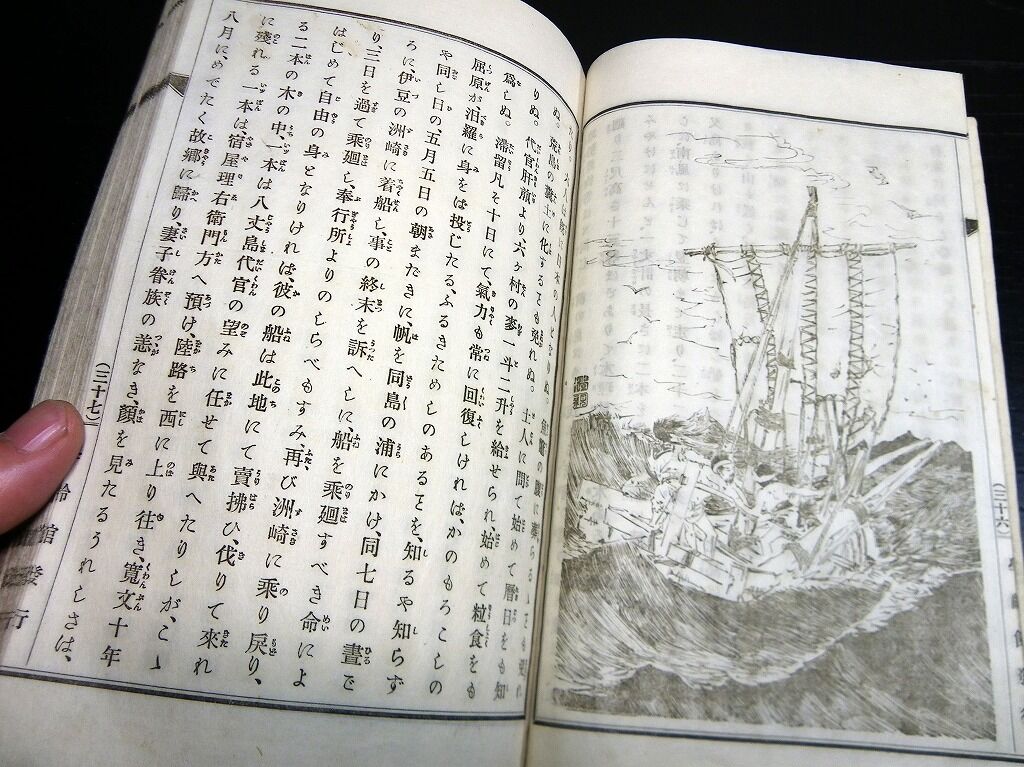 ぬ。鬼島の糞土に化するをも免れぬ。土人に問て始めて暦日をも知
りぬ。代官肝煎より六ヶ村の麥一斗二升を給せられ、始めて粒食をも
爲しぬ。滯留凡そ十日にて、氣力も常に回復しければ、かのもろこしの
屈原が汨羅に身をば投じたる、ふるきためしのあるとを、知るや知らず
や同じ日の、五月五日の朝まだきに、帆を同島の浦にかけ、同七日の晝で
ろに、伊豆の洲崎に着船し、事の終末を訴へしに、船を乘廻すべき命によ
り、三日を過て乘廻し、奉行所よりのしらべもすみ、再び洲崎に乘り戻り、
はじめて自由の身となりければ、彼の船は此地にて賣拂ひ、伐りて來れ
る二本の木の中、一本は八丈島代官の望みに任せて與へたりしが、こゝ
に殘れる一本は、宿屋理右衛門方へ預け、陸路を西に上り往き、寛文十年
八月に、めでたく故郷に歸り、妻子眷族の恙なき、顏を見たるうれしさは、
（三十七）
館發行
（三十六）